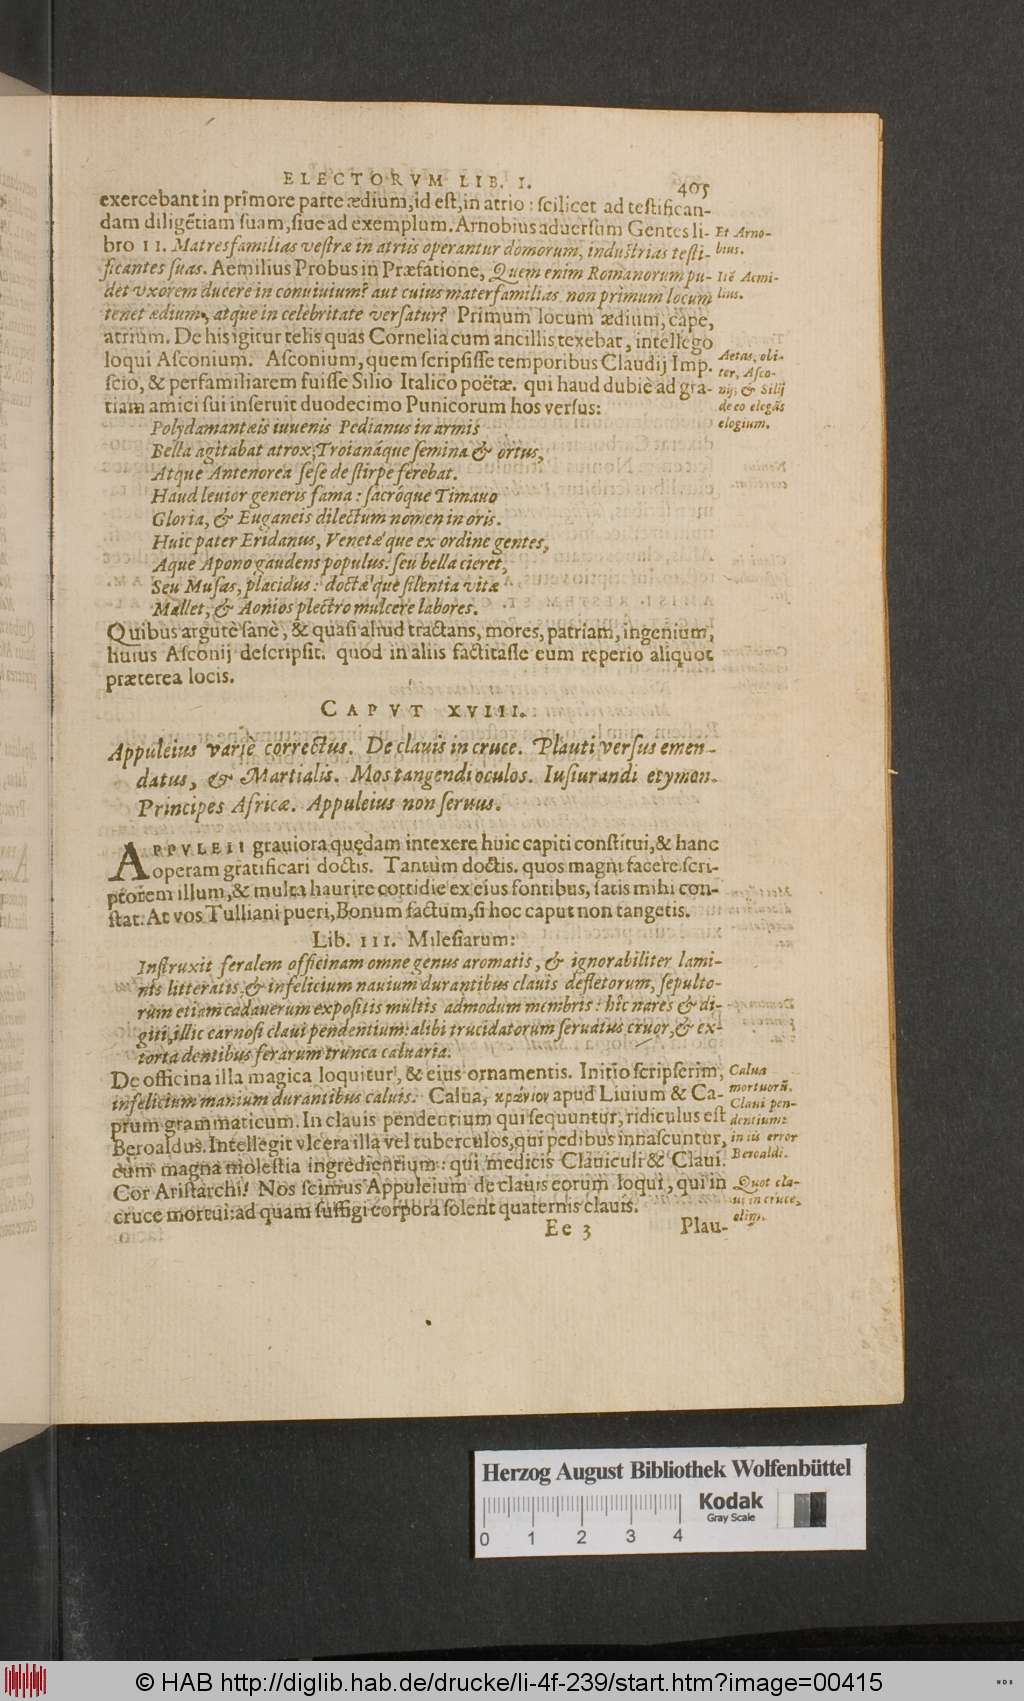 ELECTORVM LIB. I.
405
exercebant in primore parte ædium, id est, in atrio: scilicet ad testifican-
dam diligẽtiam suam, siue ad exemplum. Arnobius aduersum Gentes li-
Et Arno-
bius.
bro II. Matresfamilias vestræ in atriis operantur domorum, industrias testi-
ficantes suas. Aemilius Probus in Præfatione, Quem enim Romanorum pu-
Itẽ Aemi-
lius.
det vxorem ducere in conuiuium? aut cuius materfamilias non primum locum
tenet ædium, atque in celebritate versatur? Primum locum ædium, cape,
atrium. De his igitur telis quas Cornelia cum ancillis texebat, intellego
loqui Asconium. Asconium, quem scripsisse temporibus Claudij Imp.
Aetas, obi-
ter, Asco-
nij, & Silij
de eo elegãs
elogium.
scio, & perfamiliarem fuisse Silio Italico poëtæ. qui haud dubiè ad gra-
tiam amici sui inseruit duodecimo Punicorum hos versus:
Polydamantæis iuuenis Pedianus in armis
Bella agitabat atrox, Troianáque semina & ortus,
Atque Antenorea sese de stirpe ferebat.
Haud leuior generis fama: sacróque Timauo
Gloria, & Euganeis dilectum nomen in oris.
Huic pater Eridanus, Venetæ que ex ordine gentes,
Aque Apono gaudens populus. seu bella cieret,
Seu Musas, placidus: doctæ que silentia vitæ
Mallet, & Aonios plectro mulcere labores.
Quibus argutè sanè, & quasi aliud tractans, mores, patriam, ingenium,
huius Asconij descripsit. quod in aliis factitasse eum reperio aliquot
præterea locis.
CAPVT XVIII.
Appuleius variè correctus. De clauis in cruce. Plauti versus emen-
datus, & Martialis. Mos tangendi oculos. Iusiurandi etymon.
Principes Africæ. Appuleius non seruus.
APPVLEII grauiora quędam intexere huic capiti constitui, & hanc
operam gratificari doctis. Tantùm doctis. quos magni facere scri-
ptorem illum, & multa haurire cottidie ex eius fontibus, satis mihi con-
stat. At vos Tulliani pueri, Bonum factum, si hoc caput non tangetis.
Lib. III. Milesiarum:
Instruxit feralem officinam omne genus aromatis, & ignorabiliter lami-
nis litteratis, & infelicium nauium durantibus clauis defletorum, sepulto-
rum etiam cadauerum expositis multis admodum membris: hîc nares & di-
giti, illic carnosi claui pendentium: alibi trucidatorum seruatus cruor, & ex-
torta dentibus ferarum trunca caluaria.
De officina illa magica loquitur, & eius ornamentis. Initio scripserim,
infelicium manium durantibus caluis. Calua, κράνιον apud Liuium & Ca-
Calua
mortuorũ.
prum grammaticum. In clauis pendentium qui sequuntur, ridiculus est
Claui pen-
dentium:
in iis error
Beroaldi.
Beroaldus. Intellegit vlcera illa vel tuberculos, qui pedibus innascuntur,
cum magna molestia ingredientium: qui medicis Clauiculi & Claui.
Cor Aristarchi! Nos scimus Appuleium de clauis eorum loqui, qui in
Quot cla-
ui in cruce,
olim.
cruce mortui: ad quam suffigi corpora solent quaternis clauis.
Ee 3
Plau-
Herzog August Bibliothek Wolfenbüttel
Kodak
Gray Scale
0 1 2 3 4
© HAB http://diglib.hab.de/drucke/li-4f-239/start.htm?image=00415